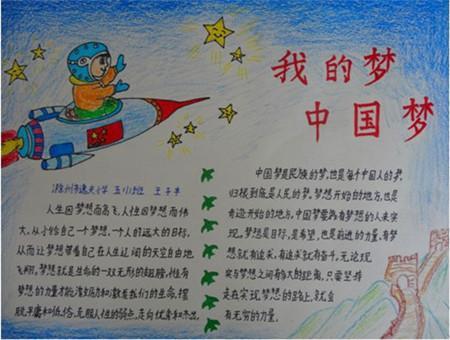 我的梦
中国梦
滁州市逸夫小学 五(1)班 王子丰
人生因梦想而高飞,人性因梦想而伟
大。从小给自己一个梦想,一个人的远大的目标,
从而让梦想带着自己在人生辽阔的天空自由地
飞翔。梦想就是生命的一双无形的翅膀,惟有
梦想的力量才能
我们的生命,摆
脱平庸和低俗,克服人性的弱点,走向优秀和杰出。
中国梦是民族的梦,也是每个中国人的梦。
归根到底是人民的梦。梦想开始的地方,也是
奇迹开始的地方,中国梦需要有梦想的人来实
现。梦想是目标,是希望,也是前进的力量。有梦
想就有追求,有追求就有奋斗,无论现
实与梦想之间有多大的距离,只要坚持
走在实现梦想的路上,就会
有无穷的力量。